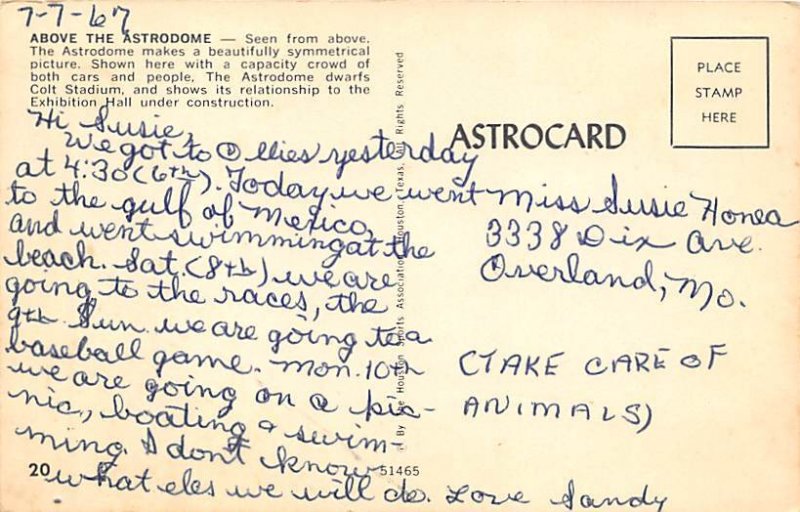 7-7-67
ABOVE THE ASTRODOME — Seen from above.
The Astrodome makes a beautifully symmetrical
picture. Shown here with a capacity crowd of
both cars and people, The Astrodome dwarfs
Colt Stadium, and shows its relationship to the
Exhibition Hall under construction.
Hi Susie,
We got to Ollies yesterday
at 4:30 (6th). Today we went
to the gulf of Mexico,
and went swimming at the
beach. Sat. (8th) we are
going to the races, the
9th Sun. we are going to a
baseball game. Mon. 10th
we are going on a pic-
nic, boating & swim-
ming. I don't know
what eles we will do. Love Sandy
20
51465
By The Houston Sports Association, Houston, Texas, All Rights Reserved
ASTROCARD
PLACE
STAMP
HERE
Miss Susie Honea
3338 Dix Ave.
Overland, Mo.
(TAKE CARE OF
ANIMALS)